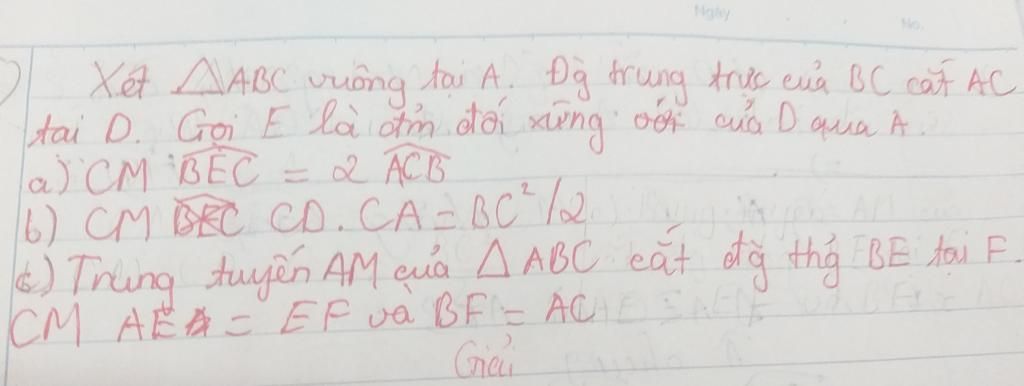 Ngày
No.
Xét △ABC vuông tại A. Đg trung trực của BC cắt AC
tại D. Gọi E là đỉm đối xứng của D qua A.
a) CM BEC = 2 ACB
b) CM CD. CA = BC²/2
c) Trung tuyến AM của △ ABC cắt đg thg BE tại F.
CM AE = EF và BF = AC
Giải